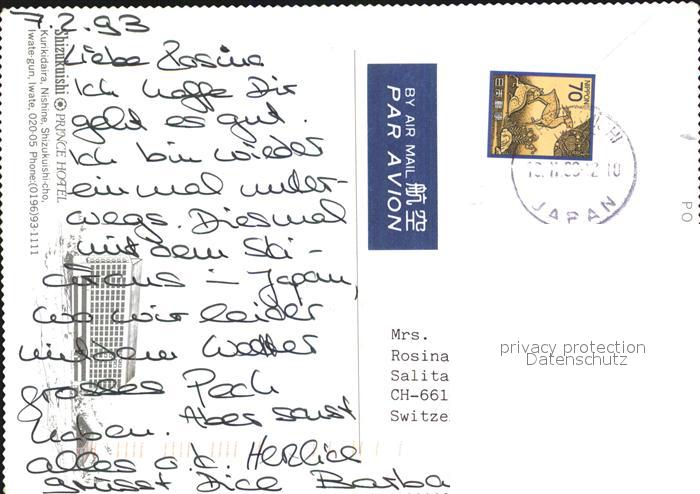 7.2.93
Liebe Rosina
Ich hoffe Dir
geht es gut.
Ich bin wieder
einmal unter-
wegs. Diesmal
mit dem Ski-
circus in Japan,
wo wir leider
mit dem Wetter
grosses Pech
haben. Aber sonst
alles o.k. Herzlich
grüsst Dich Barba
Shizukuishi PRINCE HOTEL
Kurikidaira, Nishine, Shizukuishi-cho,
Iwate-gun, Iwate, 020-05 Phone:(0196)93-1111
BY AIR MAIL 航空
PAR AVION
NIPPON
70
日本郵便
JAPAN
PO
Mrs.
Rosina
Salita
CH-661
Switze
privacy protection
Datenschutz